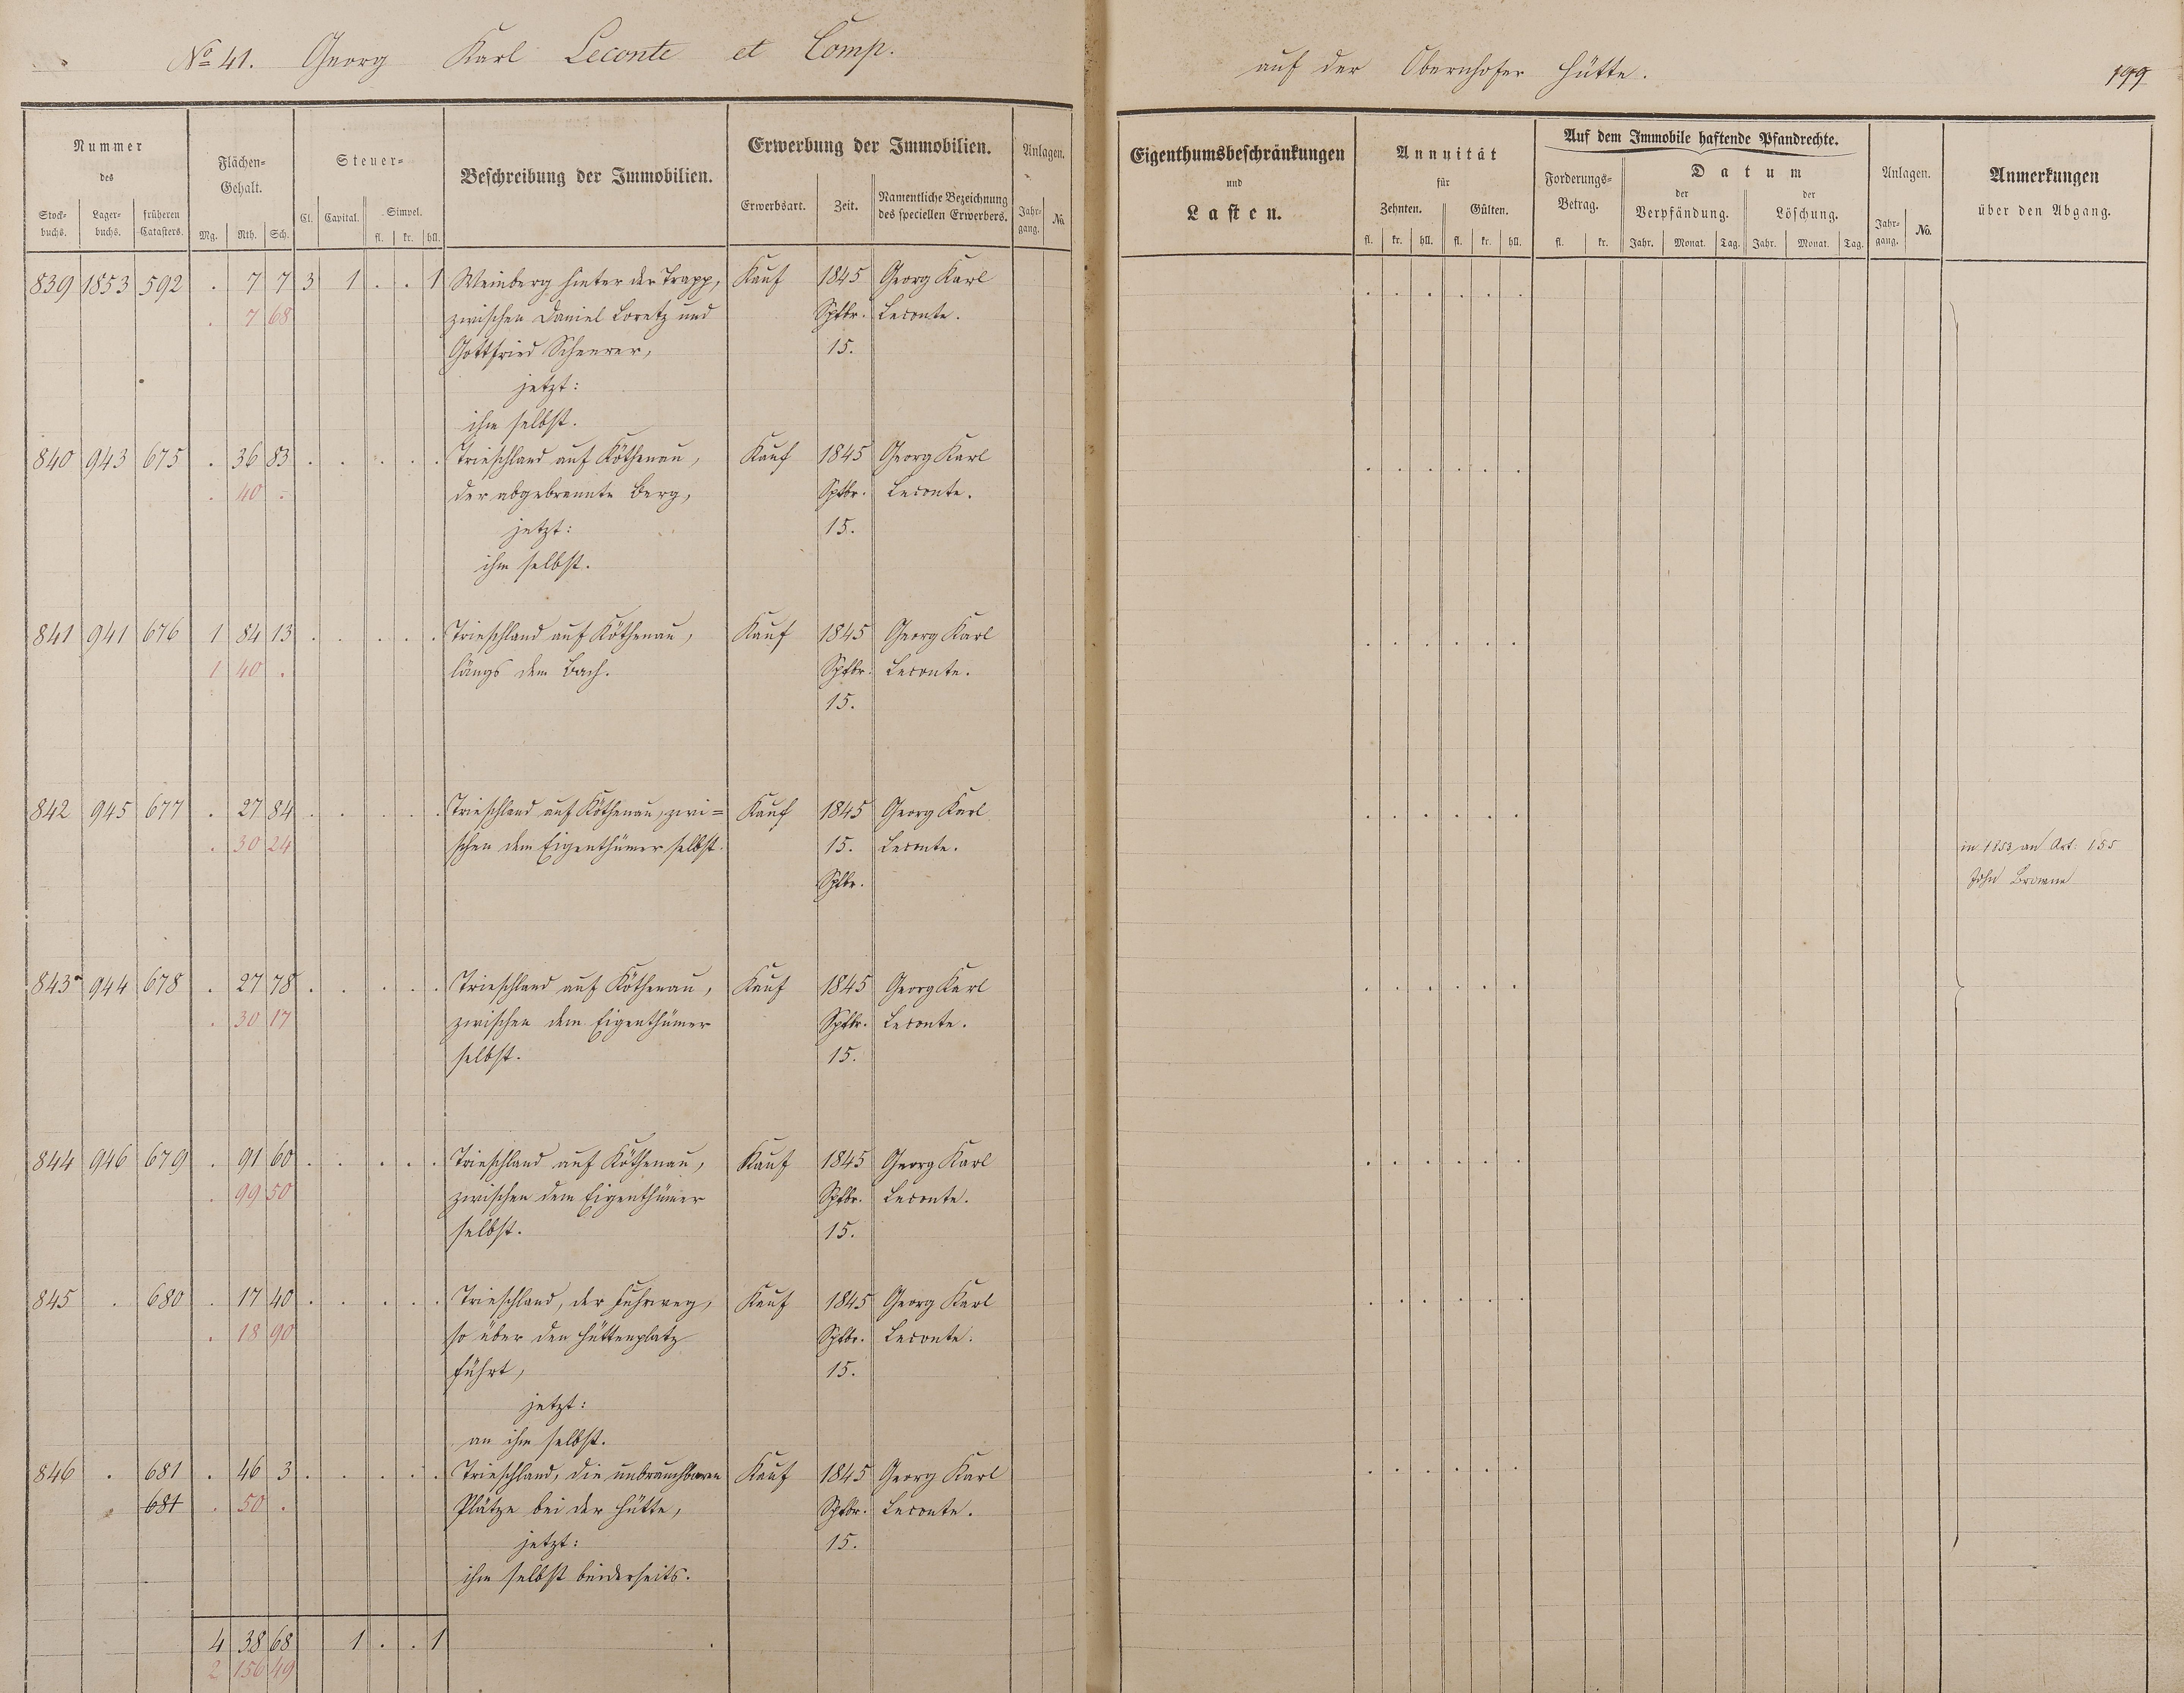 No 41. Georg Karl Leconte et Comp.
auf der Obernhofer Hütte.
199
Nummer
des
Stock-
buchs.
Lager-
buchs.
früheren
Catasters.
Flächen-
Gehalt.
Mg. Rth. Sch.
Steuer-
Cl. Capital. Simpel.
fl. kr. hll.
Beschreibung der Immobilien.
Erwerbung der Immobilien.
Erwerbsart. Zeit. Namentliche Bezeichnung
des speciellen Erwerbers.
Anlagen.
Jahr-
gang. No.
Eigenthumsbeschränkungen
und
Lasten.
Annuität
für
Zehnten. Gülten.
fl. kr. hll. fl. kr. hll.
Auf dem Immobile haftende Pfandrechte.
Forderungs-
Betrag.
fl. kr.
Datum
der
Verpfändung.
der
Löschung.
Jahr. Monat. Tag. Jahr. Monat. Tag.
Anlagen.
Jahr-
gang. No.
Anmerkungen
über den Abgang.
839 1853 592 . 7 7 3 1 . . 1 Weinberg hinter der Trapp, Kauf 1845 Georg Karl
. 7 68 zwischen Daniel Loretz und Sptbr. Leconte.
Gottfried Scheurer, 15.
jetzt:
ihm selbst.
840 943 675 . 36 83 . . . . . Trieschland auf Köthenau, Kauf 1845 Georg Karl
. 40 . der abgebrannte Berg, Sptbr. Leconte.
jetzt: 15.
ihm selbst.
841 941 676 1 84 13 . . . . . Trieschland auf Köthenau, Kauf 1845 Georg Karl
1 40 . längs dem Bach. Sptbr. Leconte.
15.
842 945 677 . 27 84 . . . . . Trieschland auf Köthenau, zwi= Kauf 1845 Georg Karl
. 30 24 schen dem Eigenthümer selbst. 15. Leconte.
Sptbr.
in 1853 an Art: 155
John Browne
843 944 678 . 27 78 . . . . . Trieschland auf Köthenau, Kauf 1845 Georg Karl
. 30 17 zwischen dem Eigenthümer Sptbr. Leconte.
selbst. 15.
844 946 679 . 91 60 . . . . . Trieschland auf Köthenau, Kauf 1845 Georg Karl
. 99 50 zwischen dem Eigenthümer Sptbr. Leconte.
selbst. 15.
845 . 680 . 17 40 . . . . . Trieschland, der Fuhrweg, Kauf 1845 Georg Karl
. 18 90 so über den Hüttenplatz Sptbr. Leconte.
führt, 15.
jetzt:
an ihm selbst.
846 . 681 . 46 3 . . . . . Trieschland, die unbrauchbaren Kauf 1845 Georg Karl
681 . 50 . Plätze bei der Hütte, Sptbr. Leconte.
jetzt: 15.
ihm selbst beiderseits.
4 38 68 1 . . 1
2 156 49